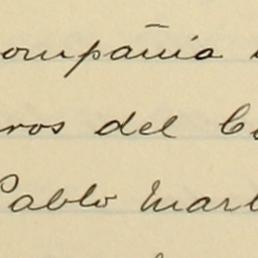 ompañia
ros del
Pablo Mar